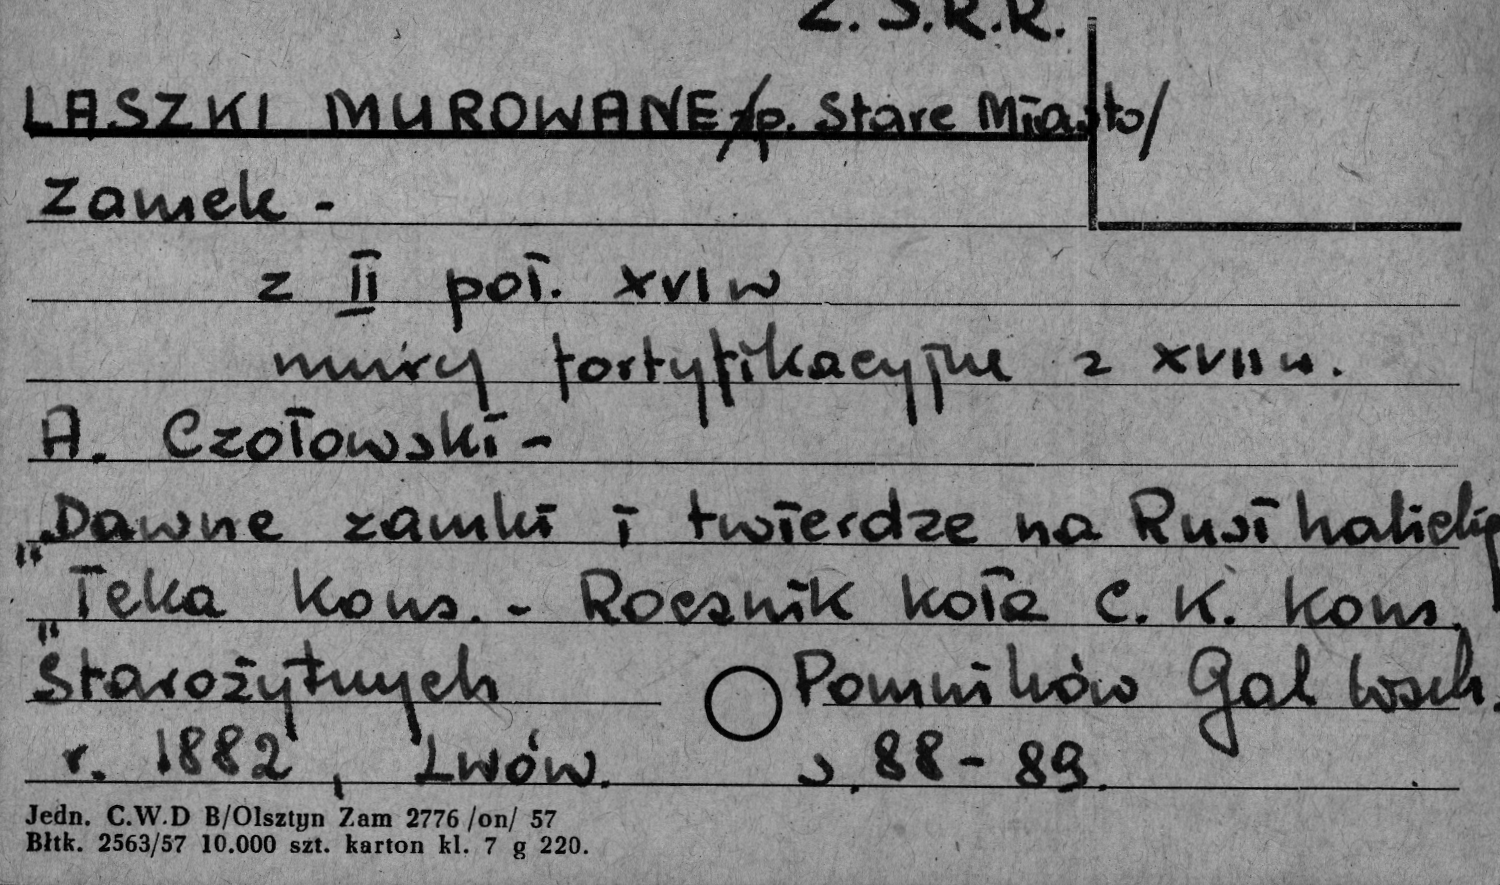 Z.S.R.R.
LASZKI MUROWANE /p. Stare Miasto/
Zamek -
z II poł. XVI w
mury fortyfikacyjne z XVII w.
A. Czołowski -
"Dawne zamki i twierdze na Rusi halickiej
"Teka Kons. - Rocznik koła C. K. Kons.
Starożytnych Pomników Gal Wsch.
r. 1882, Lwów. s. 88 - 89.
Jedn. C.W.D B/Olsztyn Zam 2776 /on/ 57
Błtk. 2563/57 10.000 szt. karton kl. 7 g 220.